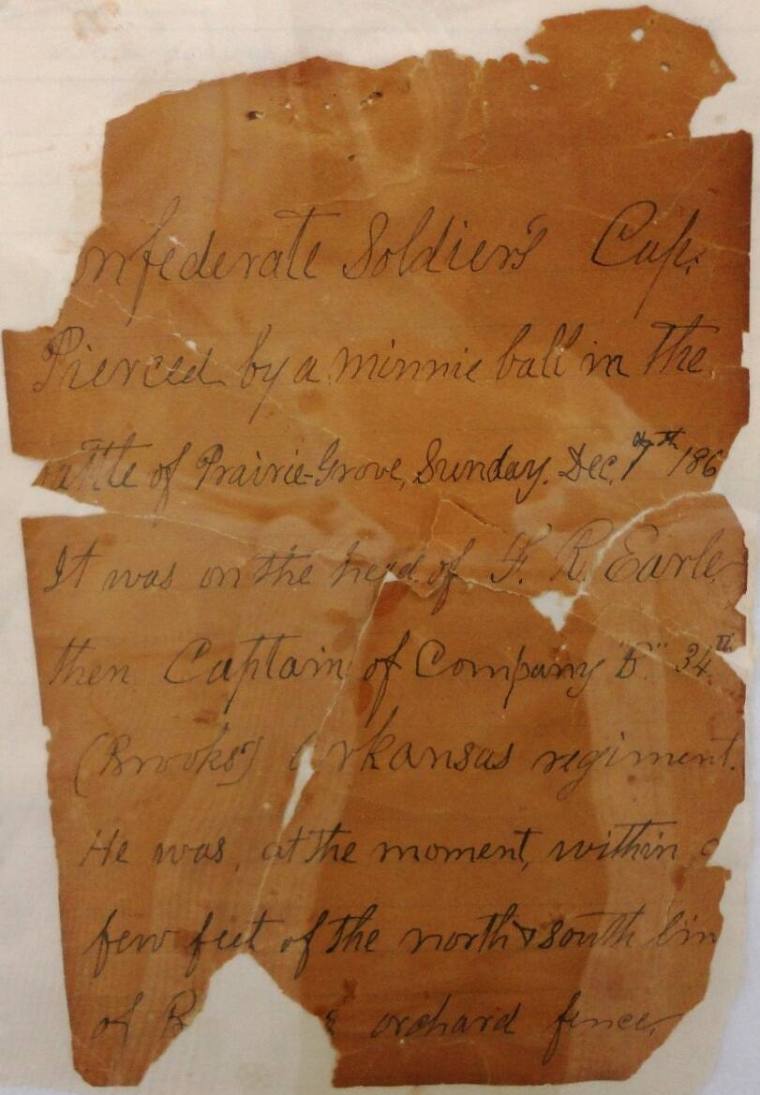 nfederate Soldier's Cap.
Pierced by a minnie ball in the
attle of Prairie-Grove, Sunday. Dec. 7th 186
It was on the head of F. R. Earle
then Captain of Company "B" 34th
(Brooks') Arkansas regiment.
He was, at the moment, within a
few feet of the north & south lin
of orchard fence.